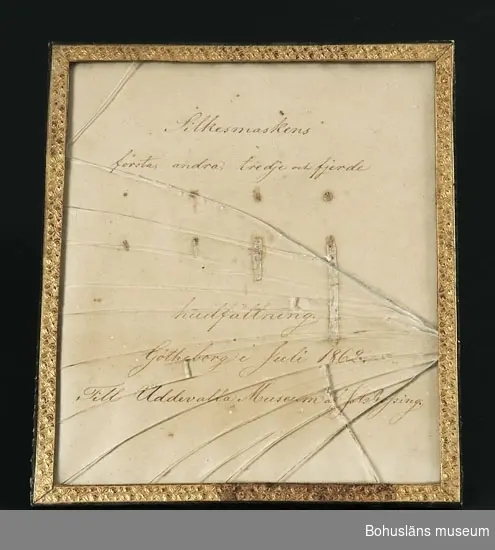 Silkesmaskens
första, andra, tredje och fjerde
hudfällning.
Götheborg i Juli 1862.
Till Uddevalla Museum af
Bohusläns museum